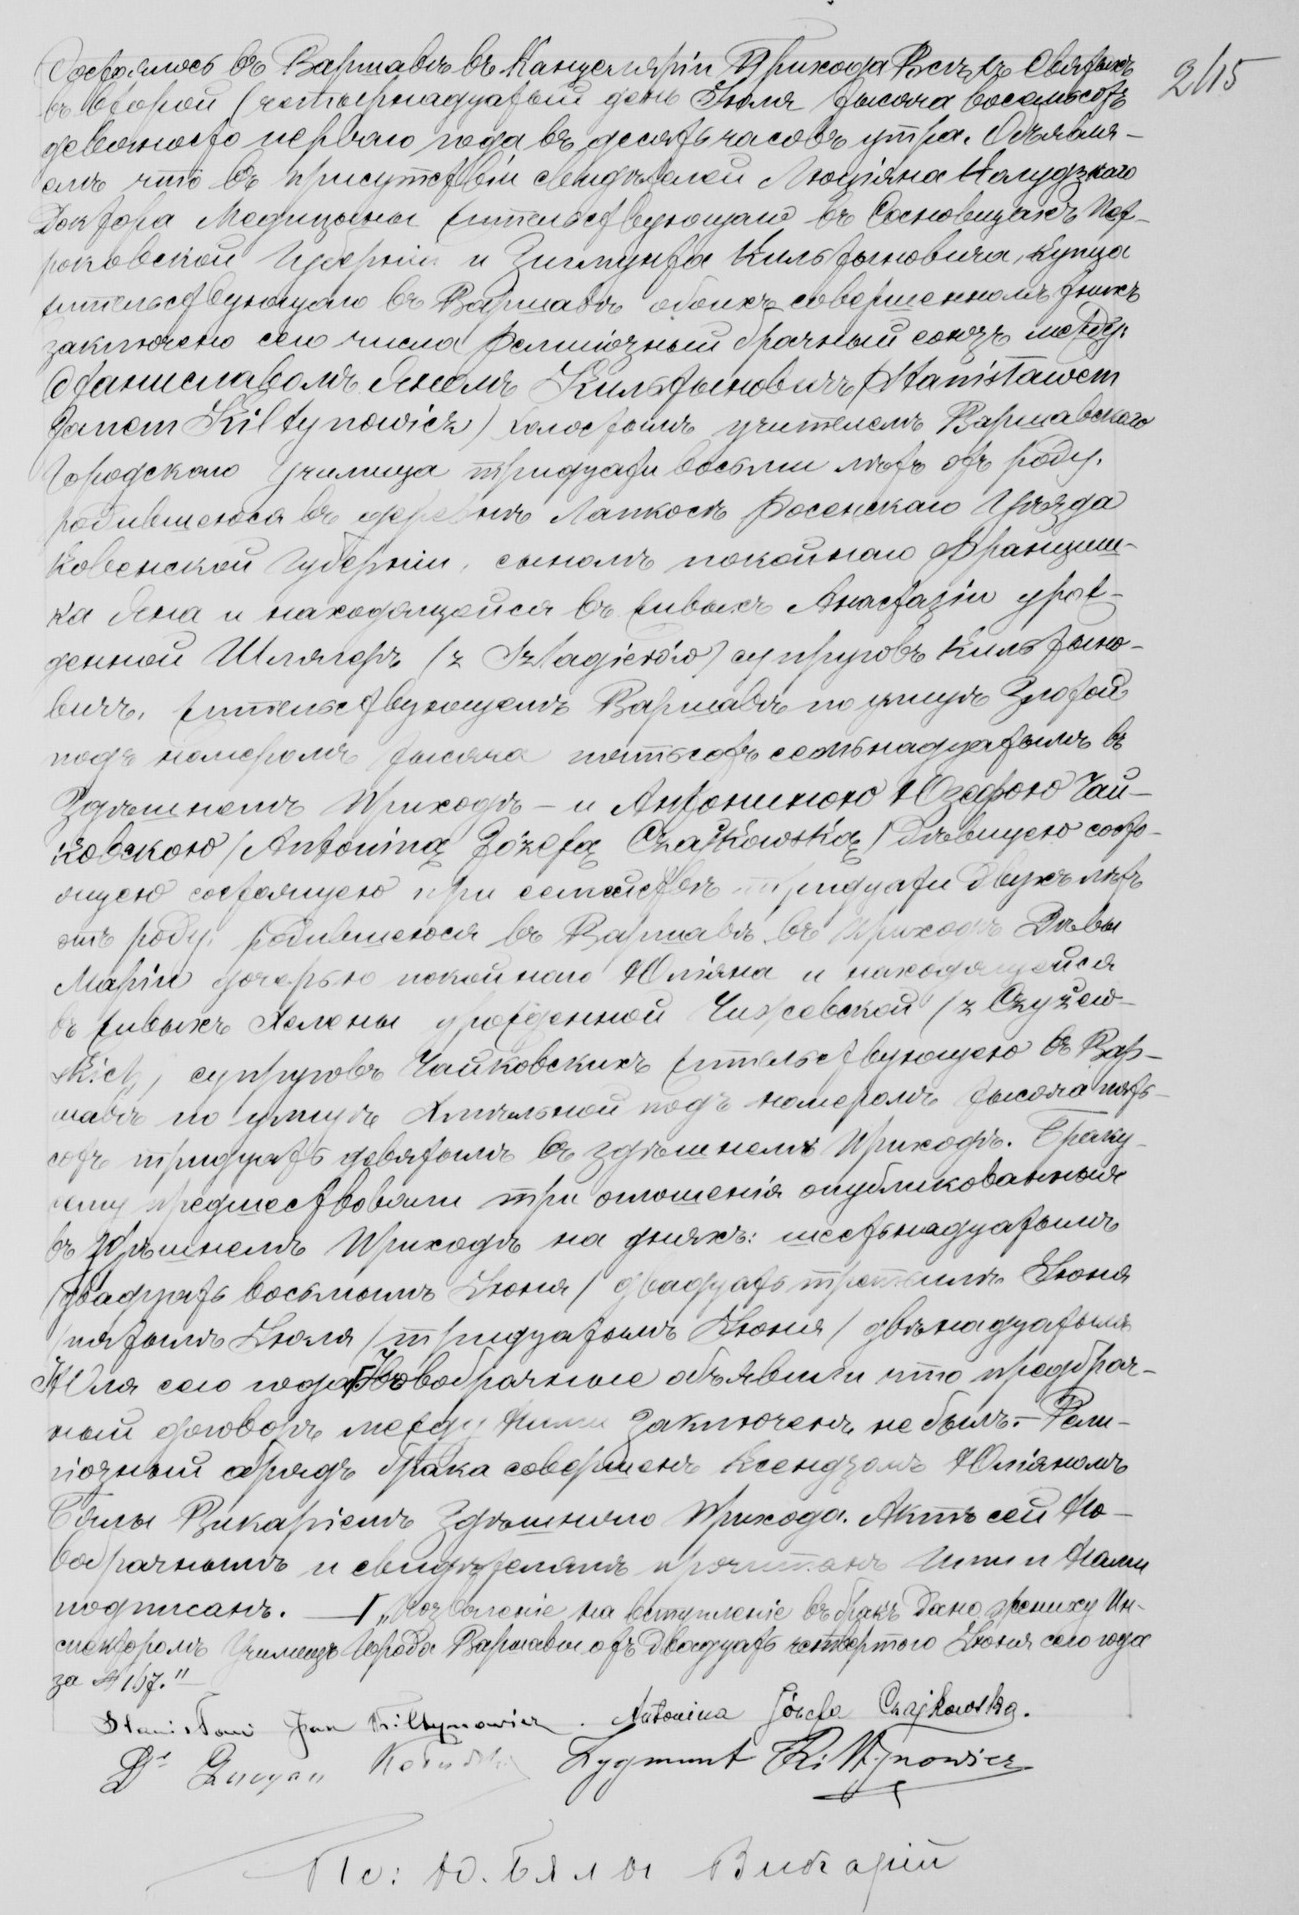 Состоялось въ Варшавѣ въ Канцеляріи Прихода Всѣхъ Святыхъ 2/15
въ второй (четырнадцатый день Іюля тысяча восемьсотъ
девяносто перваго года въ десять часовъ утра. Объявля-
емъ что въ присутствіи свидѣтелей Люціяна
Доктора Медицыны жительствующаго въ Сосновицахъ Пет-
роковской Губерніи и Зигмунта Кильтыновича, купца
жительствующаго въ Варшавѣ обоихъ совершеннолѣтнихъ
заключено сего числа Религіозный брачный союзъ между
Станиславомъ Яномъ Кильтыновичъ (Stanisławem
Janem Kiltynowicz) холостымъ учителемъ Варшавскаго
Городскаго Училища тридцати восьми лѣтъ отъ роду.
родившегося въ деревнѣ Росенскаго Уѣзда
Ковенской Губерніи, сыномъ покойнаго Франциш-
ка Яна и находящейся въ живыхъ Анастазіи урож-
денной (z Szlagierów) супруговъ Кильтыно-
вичъ, жительствующемъ Варшавѣ по улицѣ Злотой
подъ номеромъ тысяча пятьсотъ семьнадцатымъ въ
здѣшнемъ Приходѣ – и Антониною Юзефою Чай-
ковскою (Antoniną Józefą Czajkowską) Дѣвицею состо-
ящею состоящею при семействѣ тридцати двухъ лѣтъ
отъ роду, родившеюся въ Варшавѣ въ Приходѣ Дѣвы
Маріи дочерью покойнаго Юліяна и находящейся
въ живыхъ Хелены урожденной (z
skich) супруговъ Чайковскихъ жительствующею въ Вар-
шавѣ по улицѣ Хмѣльной подъ номеромъ тысяча пять-
сотъ тридцать девятымъ въ здѣшнемъ Приходѣ. Браку
сему предшествовали три оглашенія опубликованныя
въ здѣшнемъ Приходѣ на дняхъ: шестьнадцатымъ
(двадцать восьмымъ Іюня) двадцать третьимъ Іюня
(пятымъ Іюля) тридцатомъ Іюня (двѣнадцатымъ
Юля сего года. Новобрачные объявили что предбрач-
ный договоръ между Ними заключенъ не былъ.– Рели-
гіозный обрядъ брака совершенъ Ксендзомъ Юліяномъ
Бялы Викаріемъ здѣшняго Прихода. Актъ сей Но-
вобрачнымъ и свидѣтелямъ прочитанъ Ими и Нами
подписанъ. — „Позволеніе на вступленіе въ бракъ дано жениху Ин-
спекторомъ Училищъ Города Варшавы отъ двадцать четвертого Іюня сего года
за № 167."
Stanisław Jan Kiltynowicz. Antonina Józefa Czajkowska.
Dr Lucyan Zygmunt Kiltynowicz
Кс: Ю. Бялы Викарій